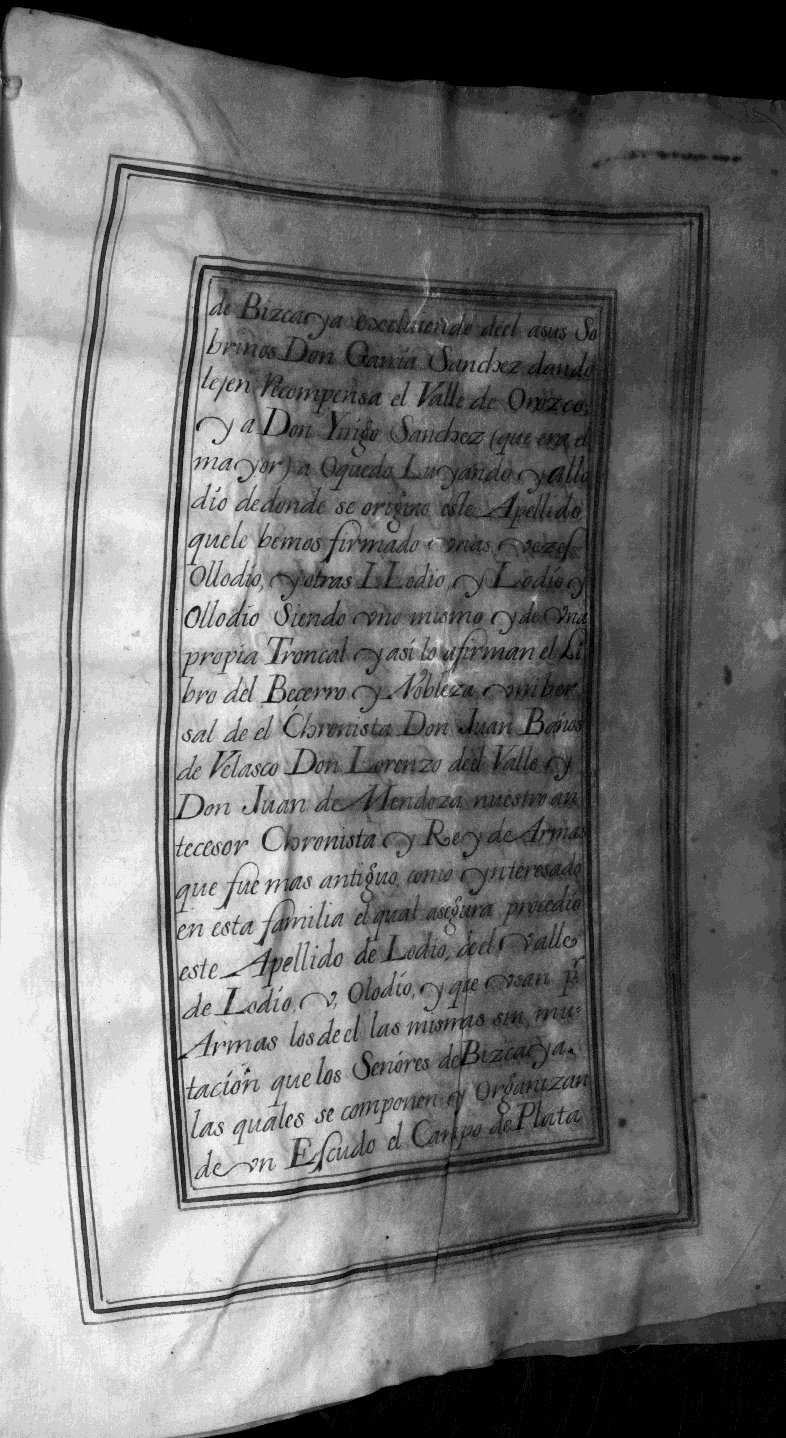 de Bizcaya exclutendo deel asus So
brinos Don Garcia Sanchez dando
lejen Recompensa el Valle de Orozco,
y a Don Yñigo Sanchez (que era el
mayor) a Oquedo Luyando y allo
dio dedonde se origino este Apellido
quele bemos firmado vnas vezes
Ollodio, y otras LLodio, y Lodio y
Ollodio Siendo vno mismo y de vna
propia Troncal y así lo afirman el Li
bro del Becerro y Nobleza vniber
sal de el Chronista Don Juan Baños
de Velasco Don Lorenzo deel Valle y
Don Juan de Mendoza nuestro an
tecesor Chronista y Rey de Armas
que fue mas antiguo, como ynteresado
en esta familia el qual asegura procedio
este Apellido de Lodio, deel Valle
de Lodio, v, Olodio, y que vsan pr.
Armas los de el las mismas sin mu-
tación que los Señores de Bizcaya.
las quales se componen y Organizan
de vn Escudo el Campo de Plata